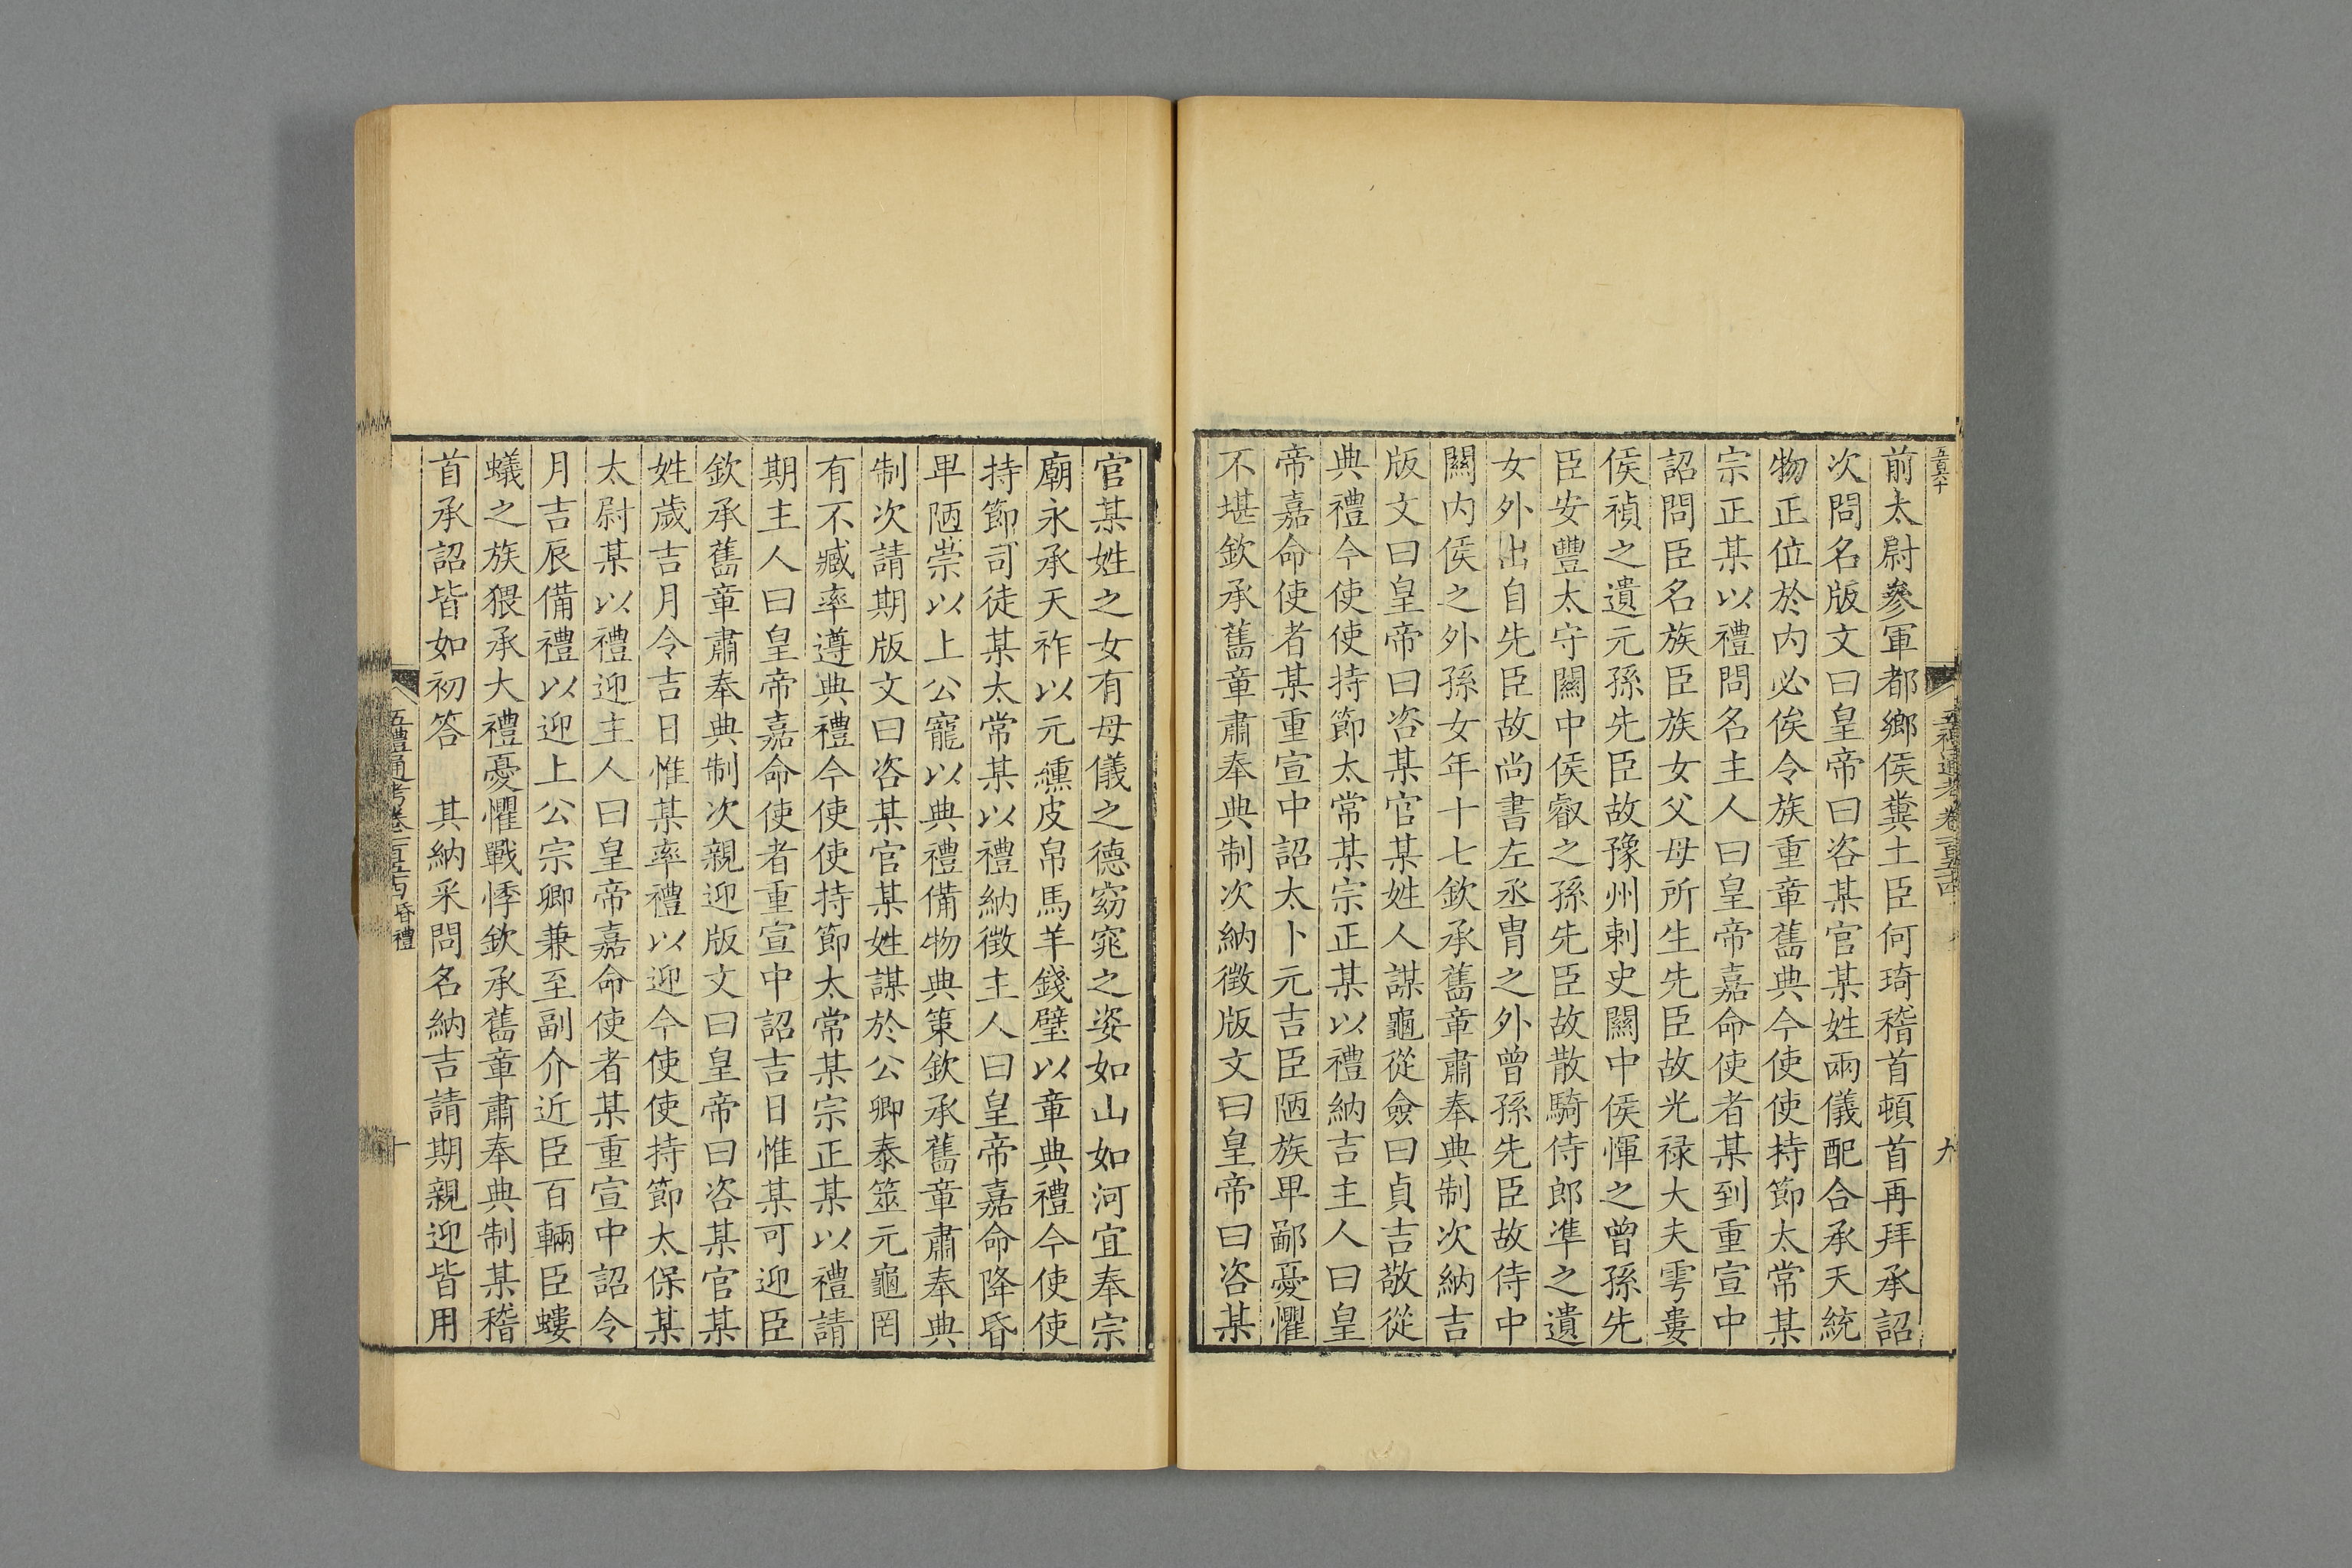 五百六十
五禮通考卷一百五十四
九
前太尉參軍都鄉侯糞土臣何琦稽首頓首再拜承詔
次問名版文曰皇帝曰咨某官某姓兩儀配合承天統
物正位於内必俟令族重章舊典今使使持節太常某
宗正某以禮問名主人曰皇帝嘉命使者某到重宣中
詔問臣名族臣族女父母所生先臣故光禄大夫雩婁
侯禎之遺元孫先臣故豫州剌史關中侯惲之曾孫先
臣安豐太守關中侯叡之孫先臣故散騎侍郎準之遺
女外出自先臣故尚書左丞胄之外曾孫先臣故侍中
關内侯之外孫女年十七欽承舊章肅奉典制次納吉
版文曰皇帝曰咨某官某姓人謀龜從僉曰貞吉敬從
典禮今使使持節太常某宗正某以禮納吉主人曰皇
帝嘉命使者某重宣中詔太卜元吉臣陋族卑鄙憂懼
不堪欽承舊章肅奉典制次納徵版文曰皇帝曰咨某
官某姓之女有母儀之德窈窕之姿如山如河宜奉宗
廟永承天祚以元纁皮帛馬羊錢璧以章典禮今使使
持節司徒某太常某以禮納徵主人曰皇帝嘉命降昏
卑陋崇以上公寵以典禮備物典策欽承舊章肅奉典
制次請期版文曰咨某官某姓謀於公卿泰筮元龜罔
有不臧率遵典禮今使使持節太常某宗正某以禮請
期主人曰皇帝嘉命使者重宣中詔吉日惟某可迎臣
欽承舊章肅奉典制次親迎版文曰皇帝曰咨某官某
姓歲吉月令吉日惟某率禮以迎今使使持節太保某
太尉某以禮迎主人曰皇帝嘉命使者某重宣中詔令
月吉辰備禮以迎上公宗卿兼至副介近臣百輛臣螻
蟻之族猥承大禮憂懼戰悸欽承舊章肅奉典制某稽
首承詔皆如初答　其納采問名納吉請期親迎皆用
五禮通考卷一百五十四 昏禮
十